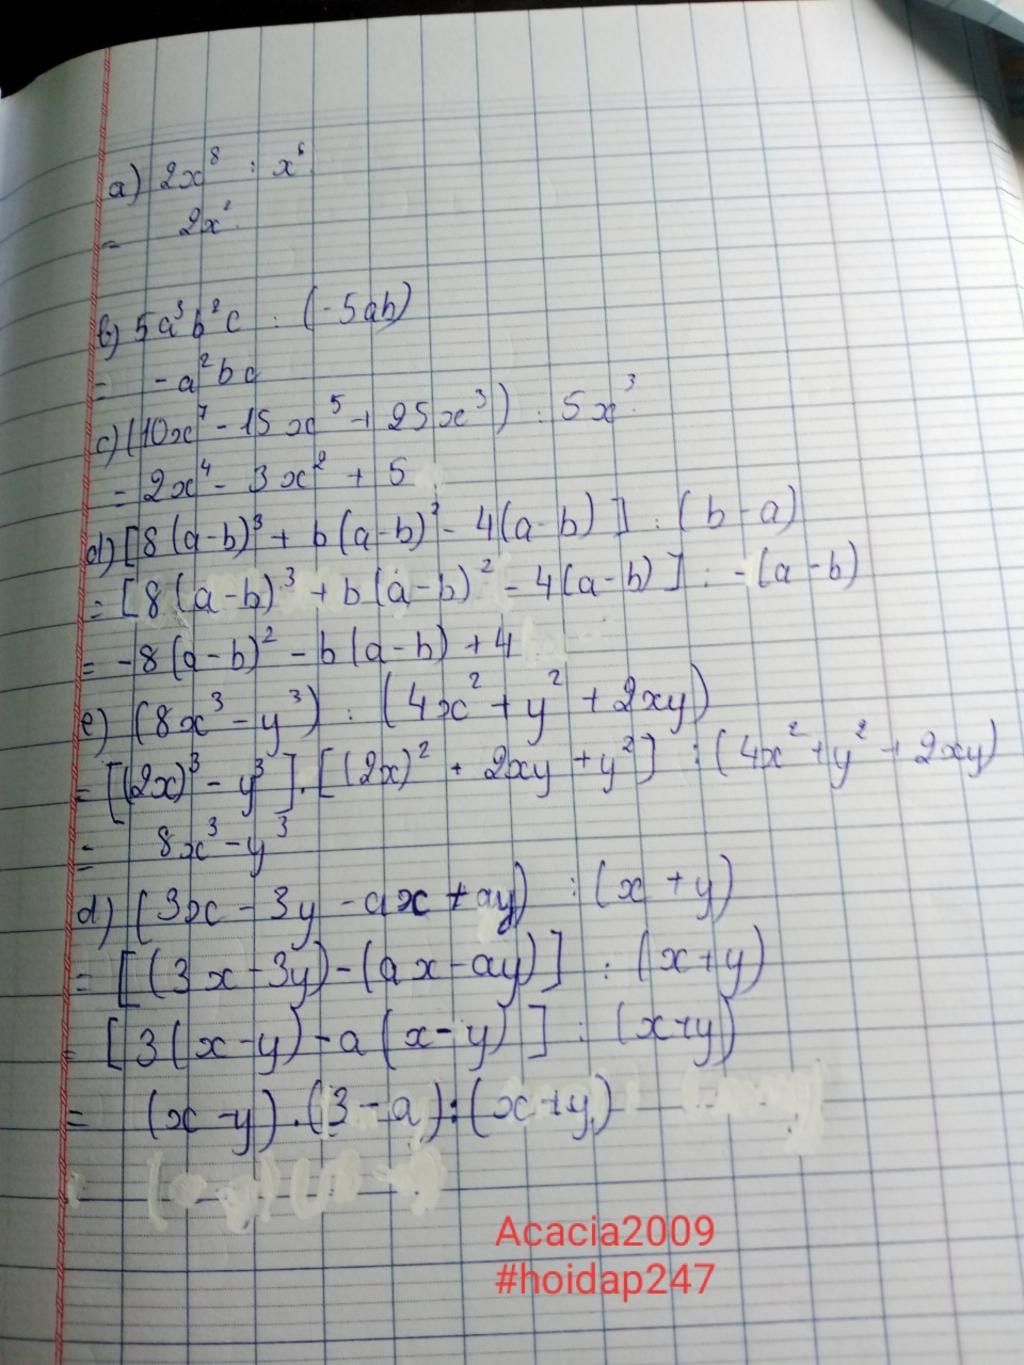 a) 2x⁸ : x⁶
= 2x²
b) 5a³b²c : (-5ab)
= -a²bc
c) (10x⁷ - 15x⁵ + 25x³) : 5x³
= 2x⁴ - 3x² + 5
d) [8(a-b)³ + b(a-b)² - 4(a-b)] : (b-a)
= [8(a-b)³ + b(a-b)² - 4(a-b)] : -(a-b)
= -8(a-b)² - b(a-b) + 4
e) (8x³ - y³) : (4x² + y² + 2xy)
= [(2x)³ - y³].[(2x)² + 2xy + y²] : (4x² + y² + 2xy)
= 8x³ - y³
d) (3x - 3y - ax + ay) : (x + y)
= [(3x - 3y) - (ax - ay)] : (x+y)
= [3(x-y) - a(x-y)] : (x+y)
= (x-y).(3-a) : (x+y)
Acacia2009
#hoidap247